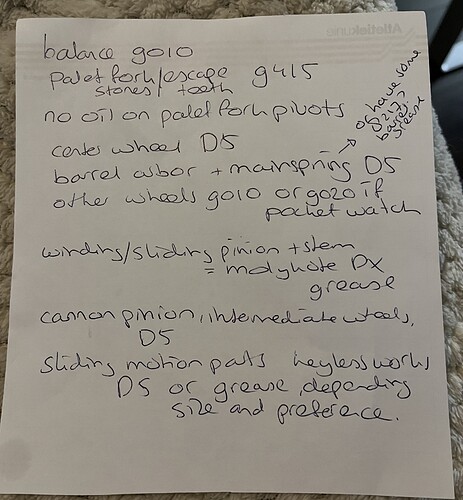 Atletiekunie
balance 9010
palet fork/escape 9415
stones/ teeth
no oil on palet fork pivots
center wheel D5
barrel arbor + mainspring D5
→ or have some
8217?
barrel
grease
other wheels 9010 or 9020 if
pocket watch
winding/sliding pinion + stem
= molykote DX
grease
cannon pinion, intermediate wheels,
D5
sliding motion parts keyless works
D5 or grease, depending
size and preference.